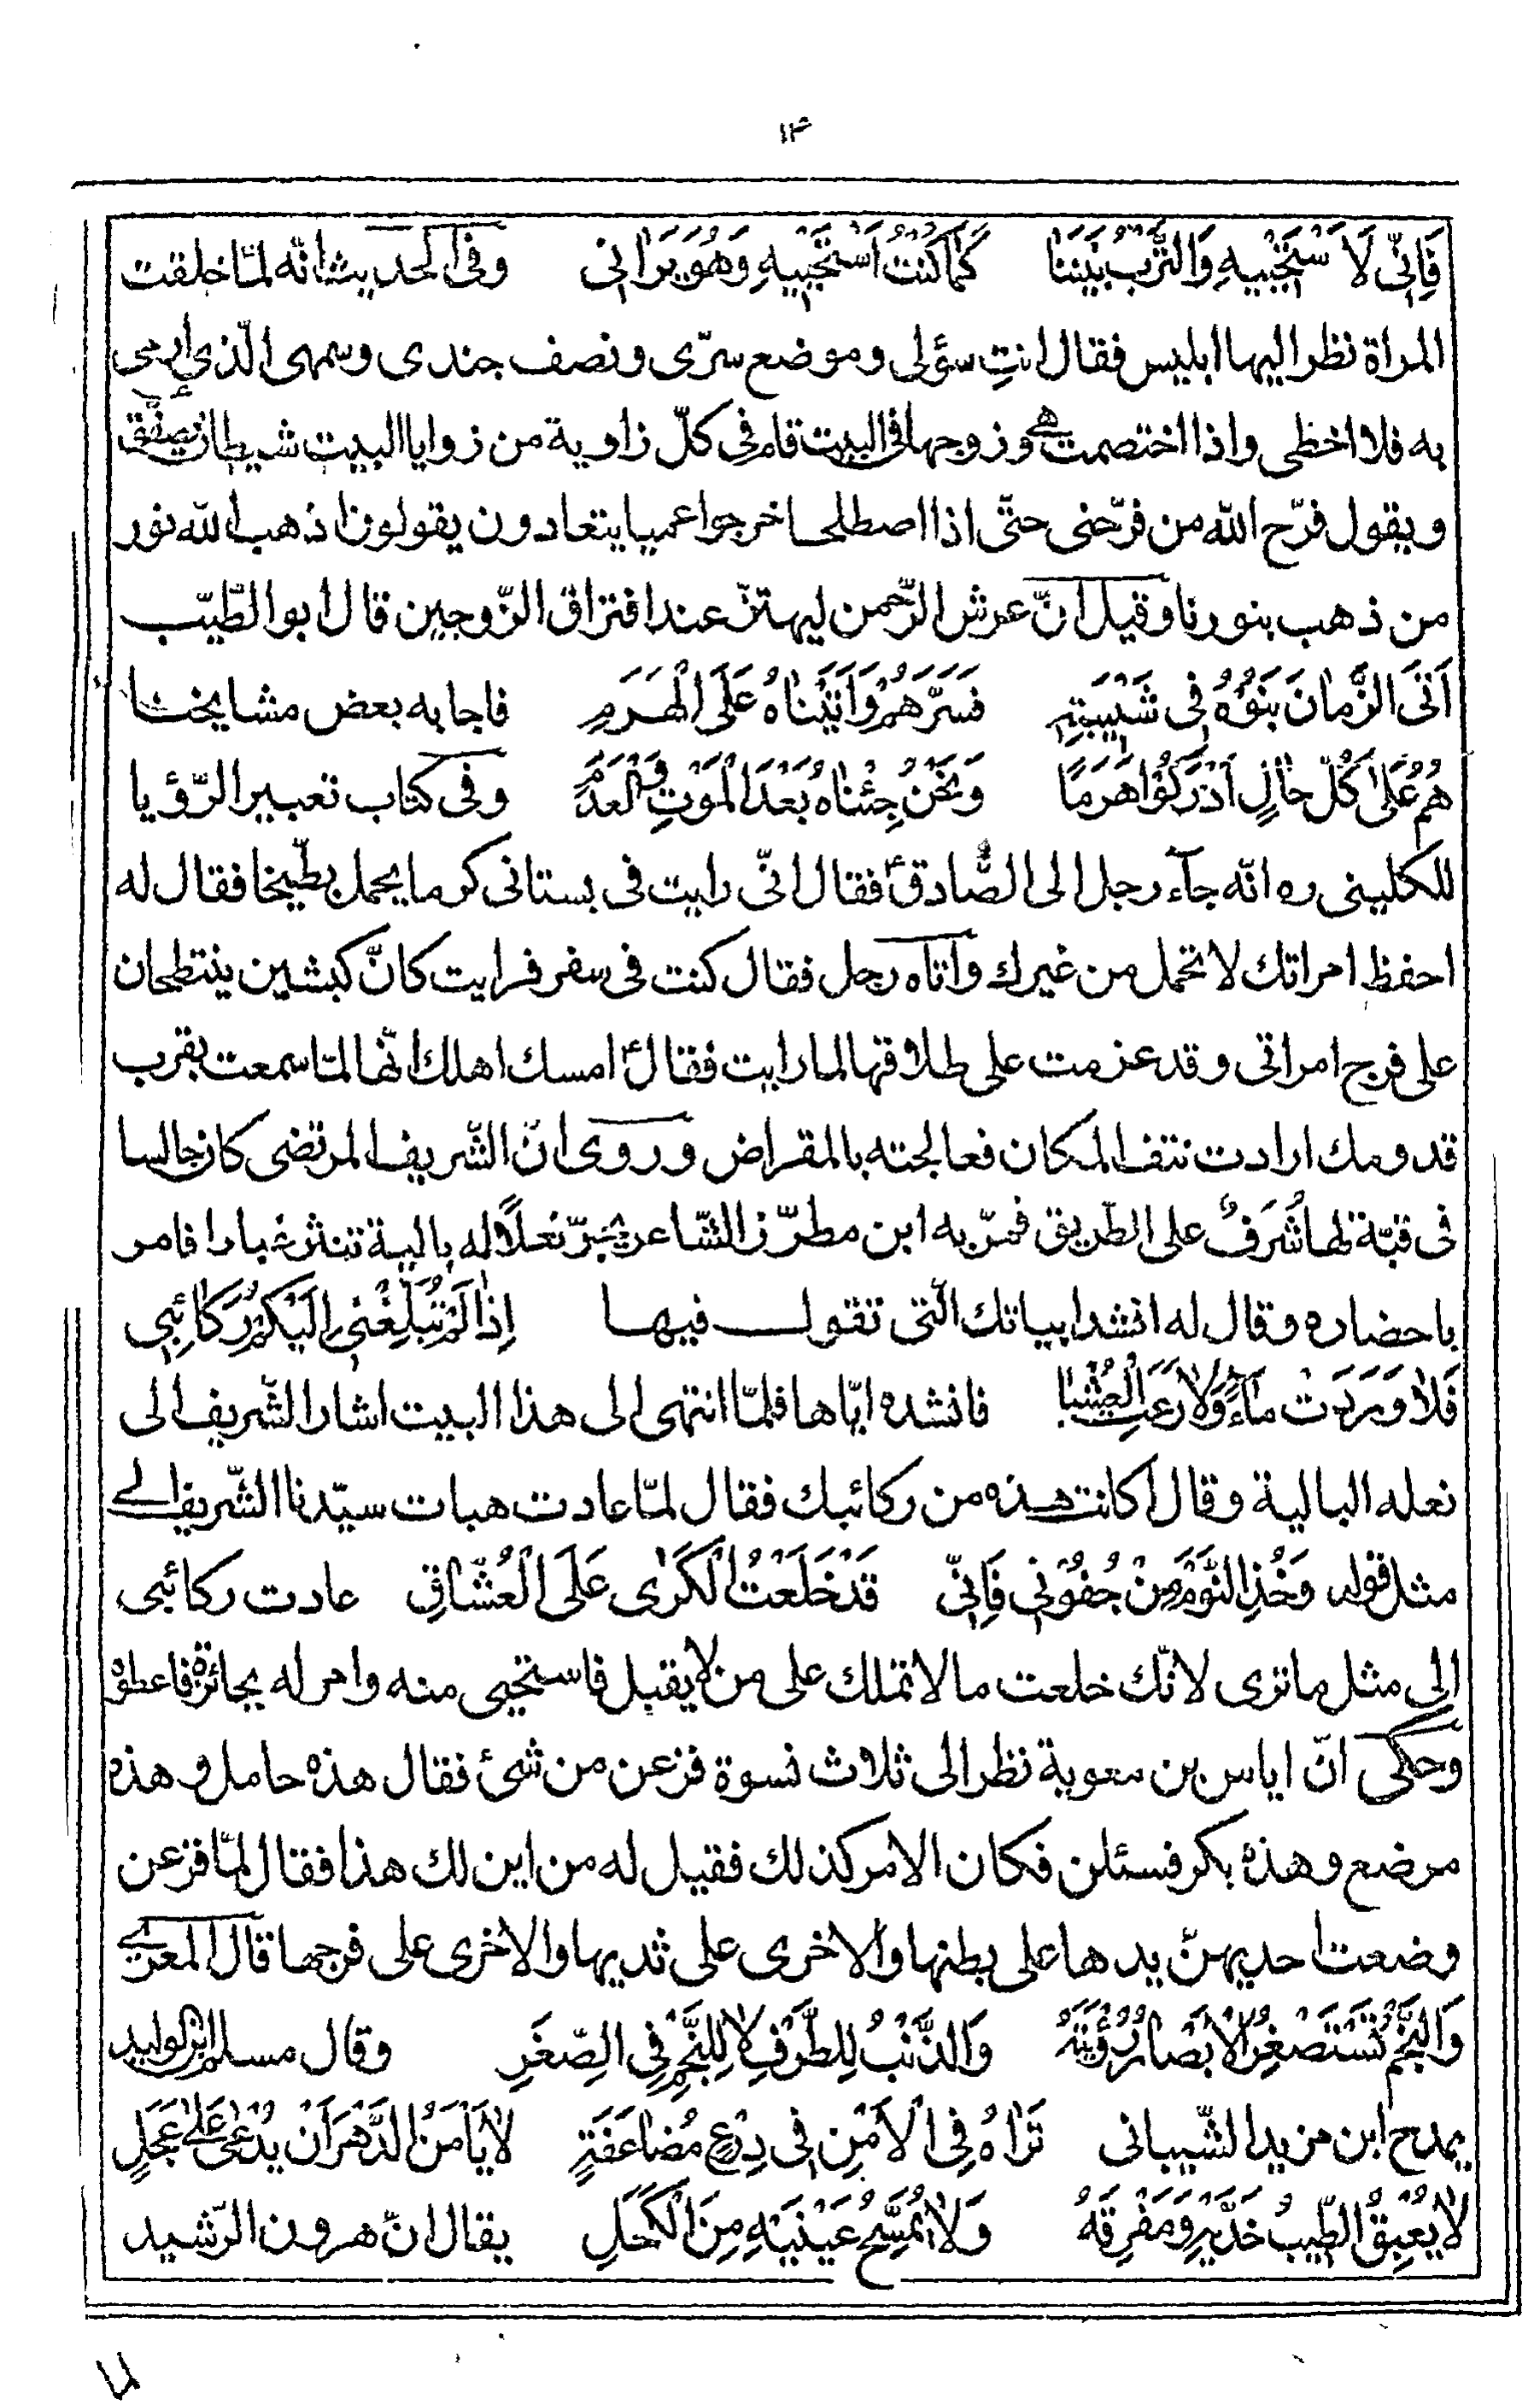 ١٣
فَاِنّي لَاَسْتَحْيِيهِ وَالتُّرْبُ بَيْنَنَا كَمَا كُنْتُ اَسْتَحْيِيهِ وَهُوَ يَرَانِي وفى الحديث انّه لمّا خلقت
المراة نظر اليها ابليس فقال انتِ سؤلى وموضع سرّى ونصف جندى وسهمى الّذى ارمى
به فلا اخطى واذا اختصمت هى وزوجها فى البيت قام فى كلّ زاوية من زوايا البيت شيطان يصفّق
ويقول فرّح الله من فرّحنى حتّى اذا اصطلحا خرجوا عميا يتعادون يقولون اذهب الله نور
من ذهب بنورنا وقيل انّ عرش الرّحمن ليهتزّ عند افتراق الزّوجين قال ابو الطّيّب
اَتَى الزَّمَانَ بَنُوهُ فِى شَبِيبَتِهِ فَسَرَّهُمْ وَاَتَيْنَاهُ عَلَى الْهَرَمِ فاجابه بعض مشايخنا
هُمْ عَلَىٰ كُلِّ حَالٍ اَدْرَكُوا هَرَمًا وَنَحْنُ جِئْنَاهُ بَعْدَ الْمَوْتِ وَالْعَدَمِ وفى كتاب تعبير الرّؤيا
للكلينى ره انّه جآء رجل الى الصّادقؑ فقال انّى رايت فى بستانى كرما يحمل بطّيخا فقال له
احفظ امراتك لا تحمل من غيرك واتاه رجل فقال كنت فى سفر فرايت كانّ كبشين ينتطحان
على فرج امراتى وقد عزمت على طلاقها لما رايت فقالؑ امسك اهلك انّها لمّا سمعت بقرب
قدومك ارادت نتف المكان فعالجته بالمقراض وروى انّ الشّريف المرتضى كان جالسا
فى قبّة لها شُرَفٌ على الطّريق فمرّ به ابن مطرّز الشّاعر يجرّ نعلاً له بالية تنثر غبارا فامر
باحضاره وقال له انشد ابياتك الّتى تقول فيها اِذَا لَمْ تُبَلِّغْنِى اِلَيْكُمْ رَكَائِبِى
فَلَا وَرَدَتْ مَاءً وَلَا رَعَتِ الْعُشْبَا فانشده ايّاها فلمّا انتهى الى هذا البيت اشار الشّريف الى
نعله البالية وقال اكانت هذه من ركائبك فقال لمّا عادت هبات سيّدنا الشّريف الى
مثل قوله وَخُذِ النَّوْمَ مِنْ جُفُونِى فَاِنِّى قَدْ خَلَعْتُ الْكَرَى عَلَى الْعُشَّاقِ عادت ركائبى
الى مثل ما ترى لانّك خلعت ما لا تملك على من لا يقبل فاستحيى منه وامر له بجائزة فاعطوه
وحكى انّ اياس بن معوية نظر الى ثلاث نسوة فزعن من شئ فقال هذه حامل وهذه
مرضع وهذه بكر فسئلن فكان الامر كذلك فقيل له من اين لك هذا فقال لمّا فزعن
وضعت احديهنّ يدها على بطنها والاخرى على ثديها والاخرى على فرجها قال المعرى
وَالنَّجْمُ تَسْتَصْغِرُ الْاَبْصَارُ رُؤْيَتَهُ وَالذَّنْبُ لِلطَّرْفِ لَا لِلنَّجْمِ فِى الصِّغَرِ وقال مسلم ابن الوليد
يمدح ابن مزيد الشّيبانى تَرَاهُ فِى الْاَمْنِ فِى دِرْعٍ مُضَاعَفَةٍ لَا يَاْمَنُ الدَّهْرَ اَنْ يُدْعَى عَلَى عَجَلٍ
لَا يَعْبِقُ الطِّيبُ خَدَّيْهِ وَمَفْرِقَهُ وَلَا يُمَسِّحُ عَيْنَيْهِ مِنَ الْكُحَلِ يقال انّ هرون الرّشيد